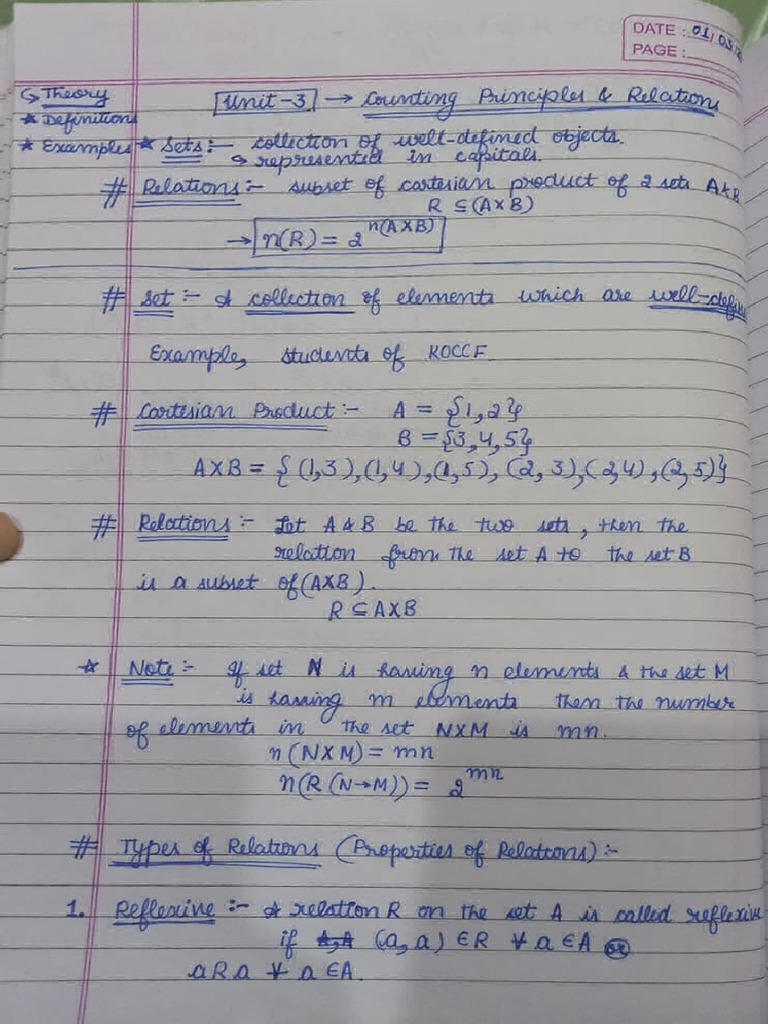 DATE : 01/03/
PAGE :
↳ Theory
★ Definitions
★ Examples
Unit-3 → Counting Principles & Relations
★ Sets :- collection of well-defined objects.
↳ represented in capitals.
# Relations :- subset of cartesian product of 2 sets A & B
R ⊆ (A×B)
→ n(R) = 2^n(A×B)
# Set :- A collection of elements which are well-define
Example, students of KOCCF.
# Cartesian Product :- A = {1,2}
B = {3,4,5}
A×B = { (1,3),(1,4),(1,5), (2,3),(2,4),(2,5)}
# Relations :- Let A & B be the two sets, then the
relation from the set A to the set B
is a subset of (A×B).
R ⊆ A×B
★ Note :- If set N is having n elements & the set M
is having m elements then the number
of elements in the set N×M is mn.
n(N×M) = mn
n(R (N→M)) = 2^mn
# Types of Relations (Properties of Relations) :-
1. Reflexive :- A relation R on the set A is called reflexive
if (a,a) ∈ R ∀ a ∈ A or
aRa ∀ a ∈ A.